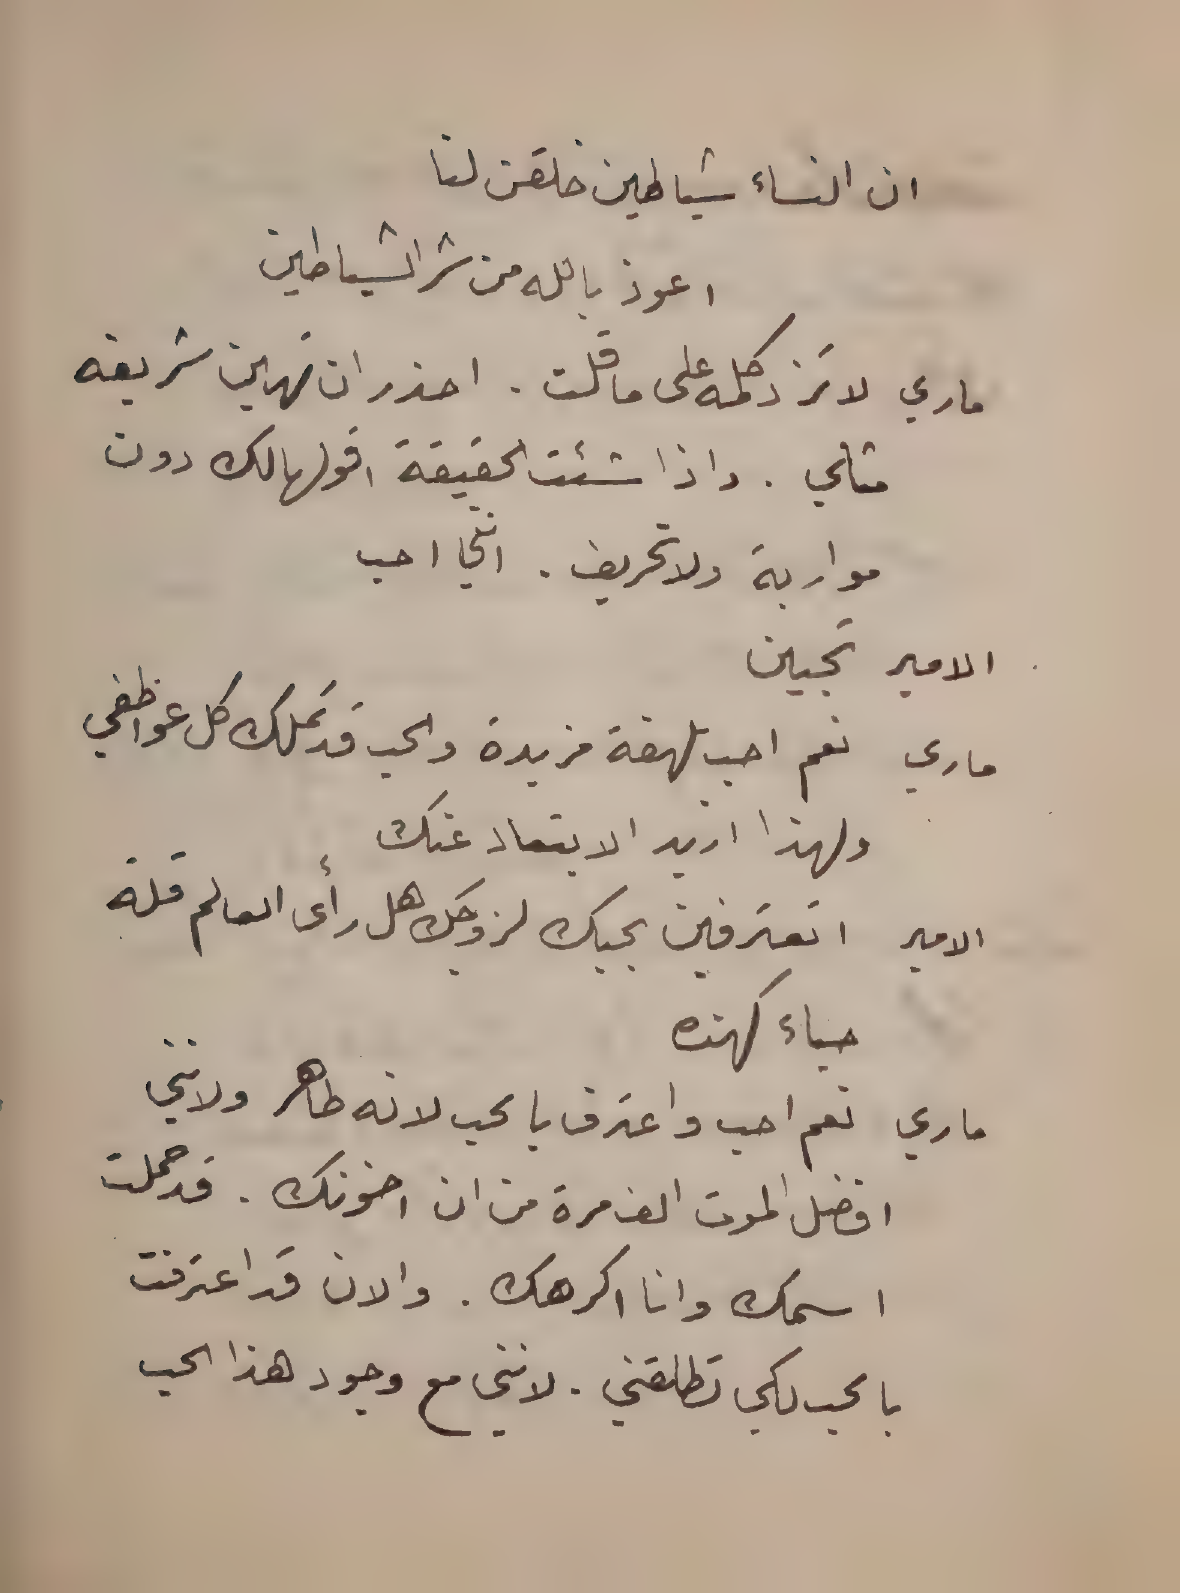 ان النساء شياطين خلقن لنا
اعوذ بالله من شر الشياطين
ماري لا تزد كلمه على ما قلت . احذر ان تهين شريفه
مثلي . واذا شئت الحقيقة اقولها لك دون
مواربة ولا تحريف . انني احب
الامير تحبين
ماري نعم احب بلهفة مزيدة والحب قد تملك كل عواطفي
ولهذا اريد الابتعاد عنك
الامير اتعترفين بحبك لزوجك هل رأى العالم قلة
حياء كهذه
ماري نعم احب واعترف بالحب لانه طاهر ولانني
افضل الموت الف مرة من ان اخونك . قد حملت
اسمك وانا اكرهك . والان قد اعترفت
بالحب لكي تطلقني . لانني مع وجود هذا الحب